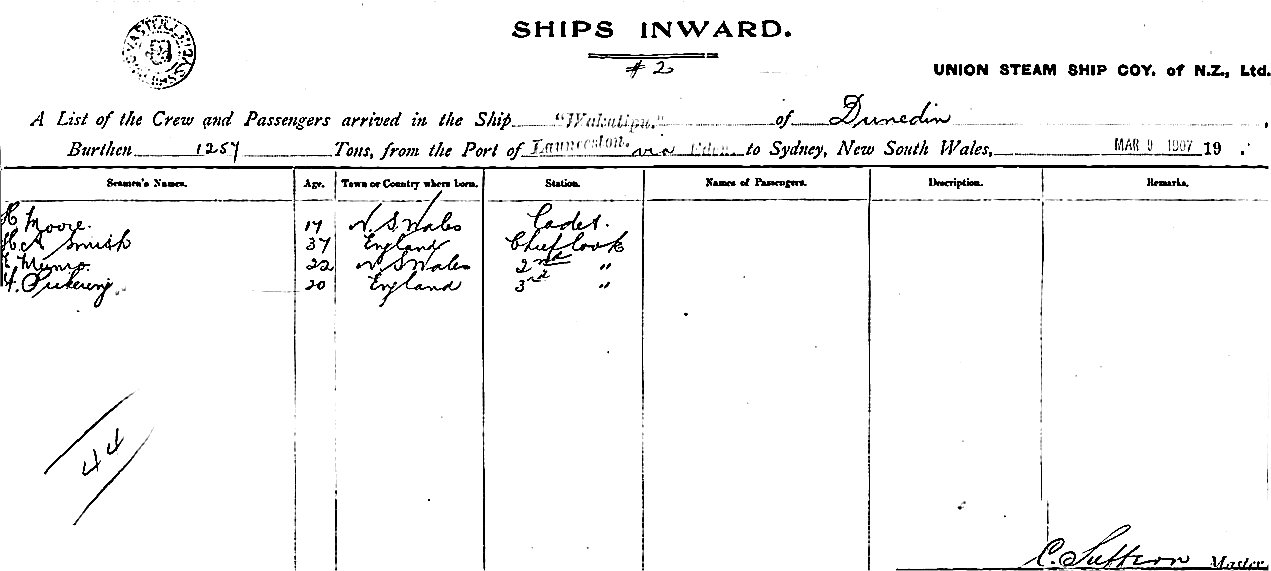 SHIPS INWARD.
# 2
UNION STEAM SHIP COY. of N.Z., Ltd.
A List of the Crew and Passengers arrived in the Ship "Wakatipu." of Dunedin,
Burthen 1257 Tons, from the Port of Launceston. via Eden to Sydney, New South Wales, MAR 9 1907 19 .
Seamen's Names. Age. Town or Country where born. Station. Names of Passengers. Description. Remarks.
H Moore. 17 N. S Wales Cadet.
H. A Smith 37 England Chief Cook
E Munro. 22 N S Wales 2nd "
F. Pickering. 20 England 3rd "
44
C. Suffern Master.